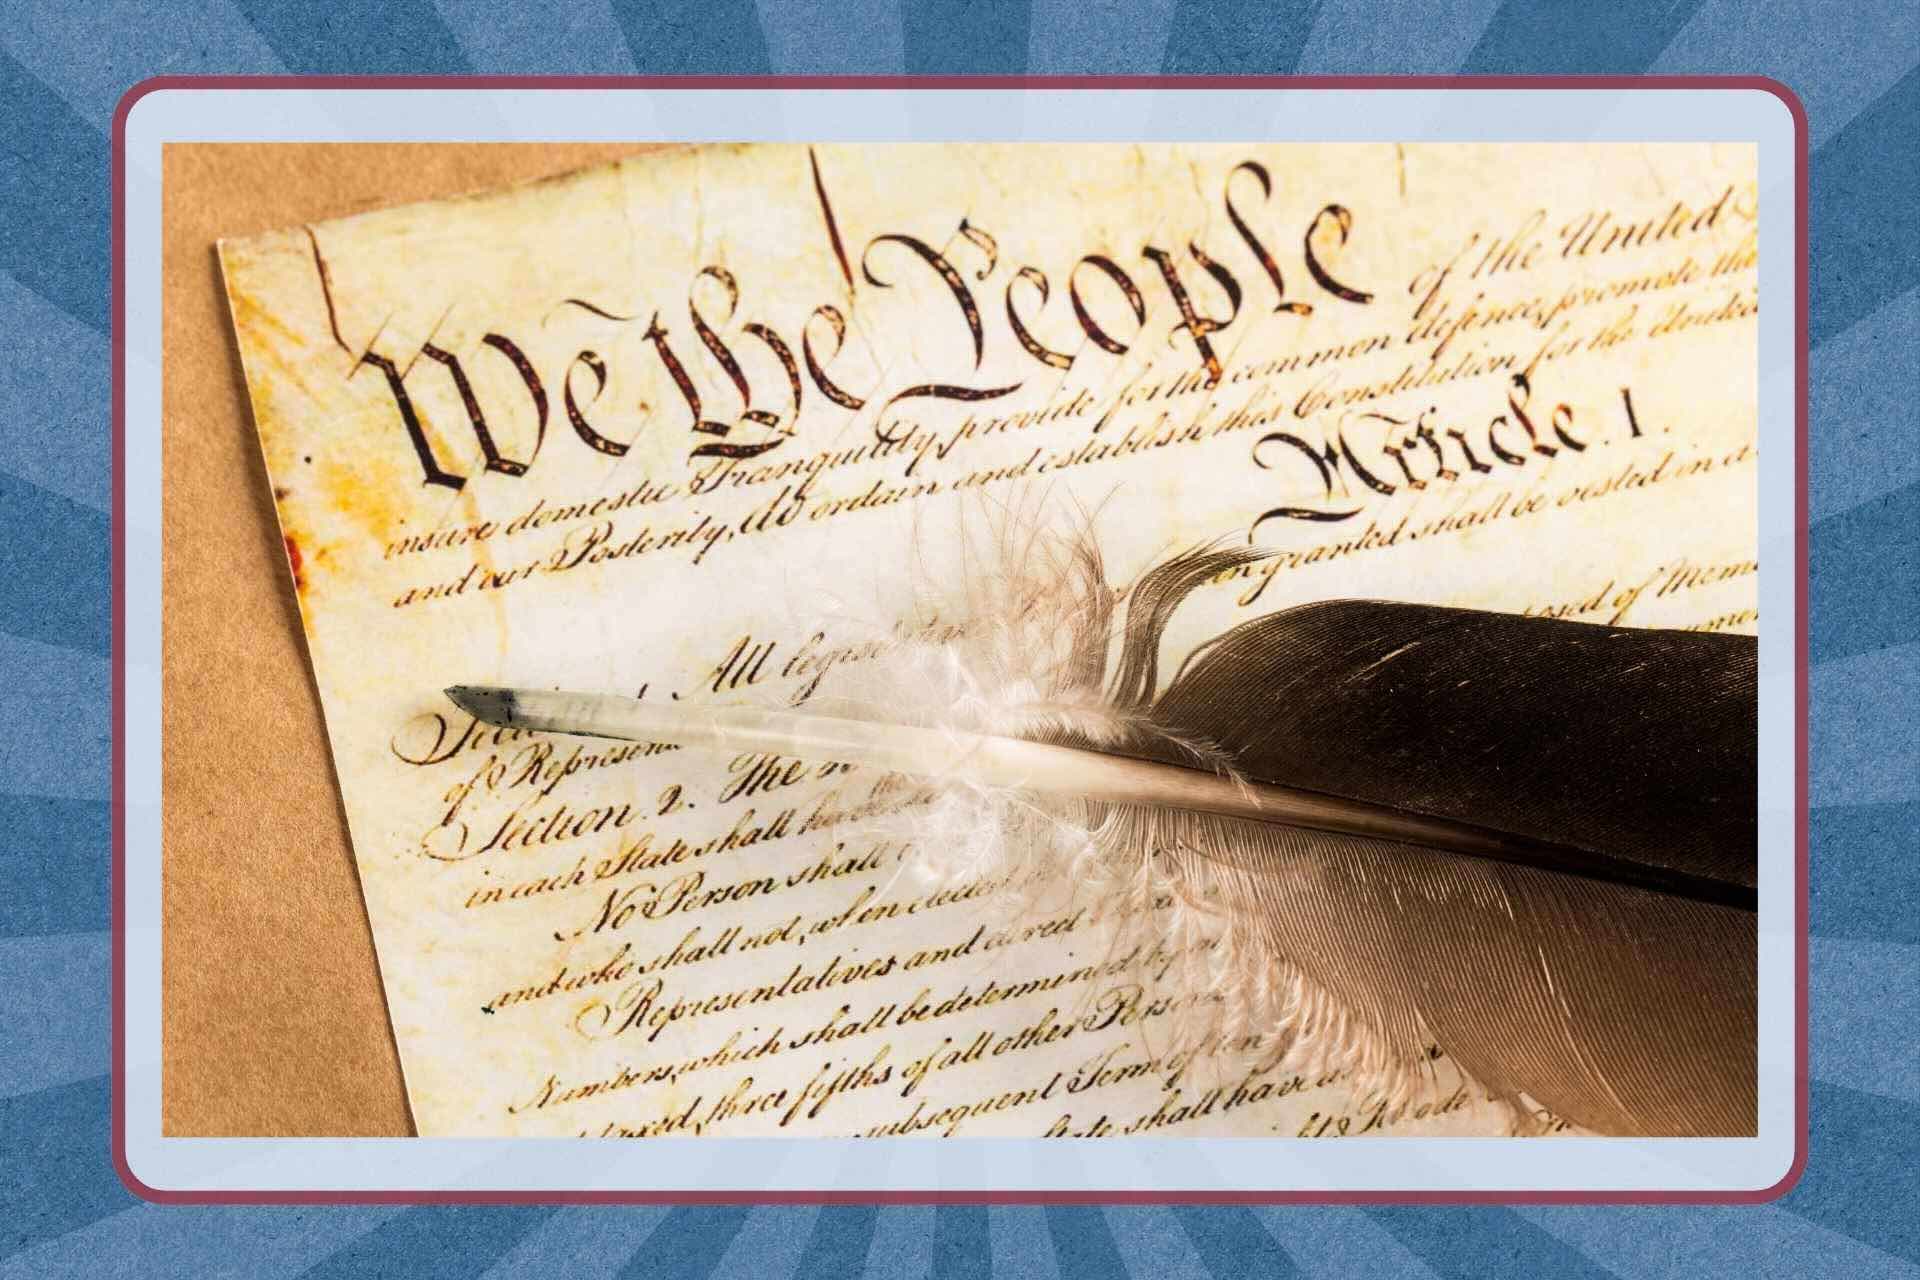 We the People of the United
insure domestic Tranquility, provide for the common defence, promote the
and our Posterity, do ordain and establish this Constitution for the United
Article. I.
All
granted shall be vested in a
of
Section. 2. The
of Mem
in each State shall have
No Person shall
and who shall not, when elected
Representatives and direct
Numbers, which shall be determined by
three fifths of all other Persons
subsequent Term of ten
State shall have